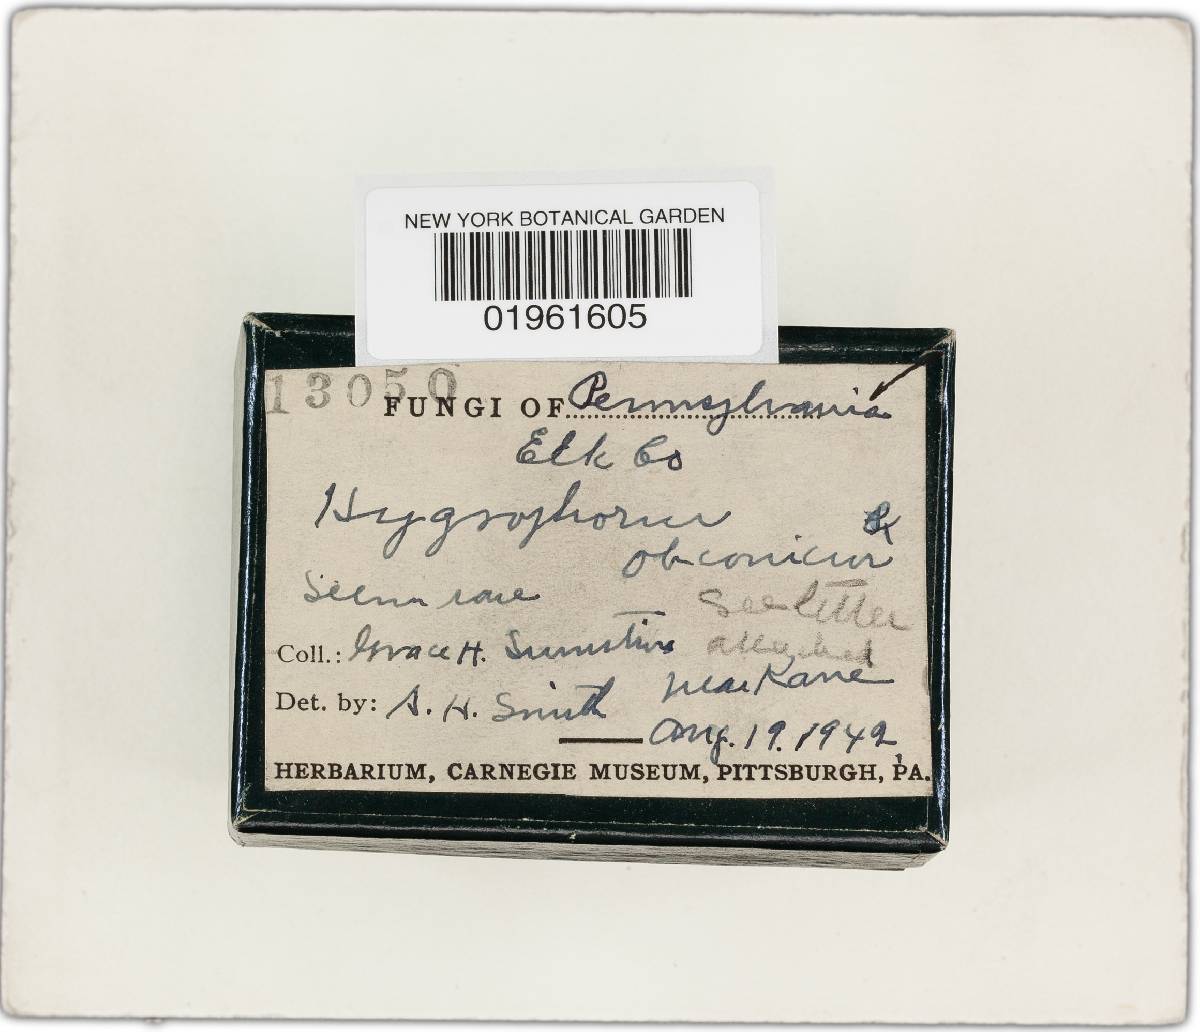 NEW YORK BOTANICAL GARDEN
01961605
13050
FUNGI OF Pennsylvania
Elk Co
Hygrophorus
obconicus
Seems rare
See letter
attached
Coll.: Grace H. Sumstine
near Kane
Det. by: A. H. Smith
Aug. 19. 1942
HERBARIUM, CARNEGIE MUSEUM, PITTSBURGH, PA.